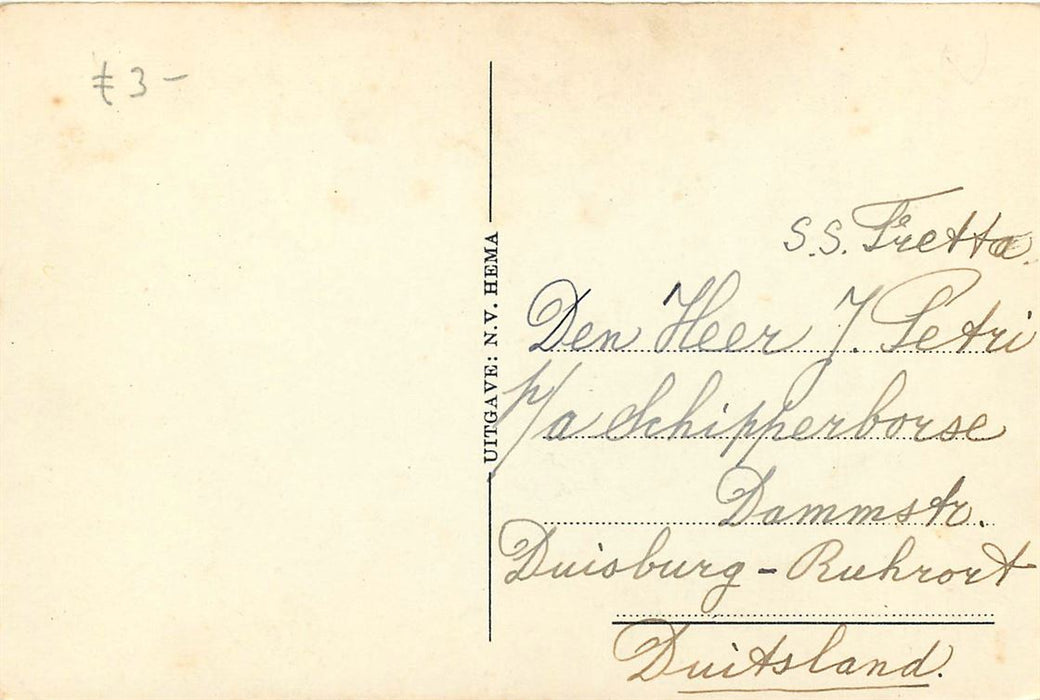 € 3 -
UITGAVE: N.V. HEMA
S.S. Fretta.
Den Heer J. Petri
p/a Schipperborse
Dammstr.
Duisburg - Ruhrort
Duitsland.